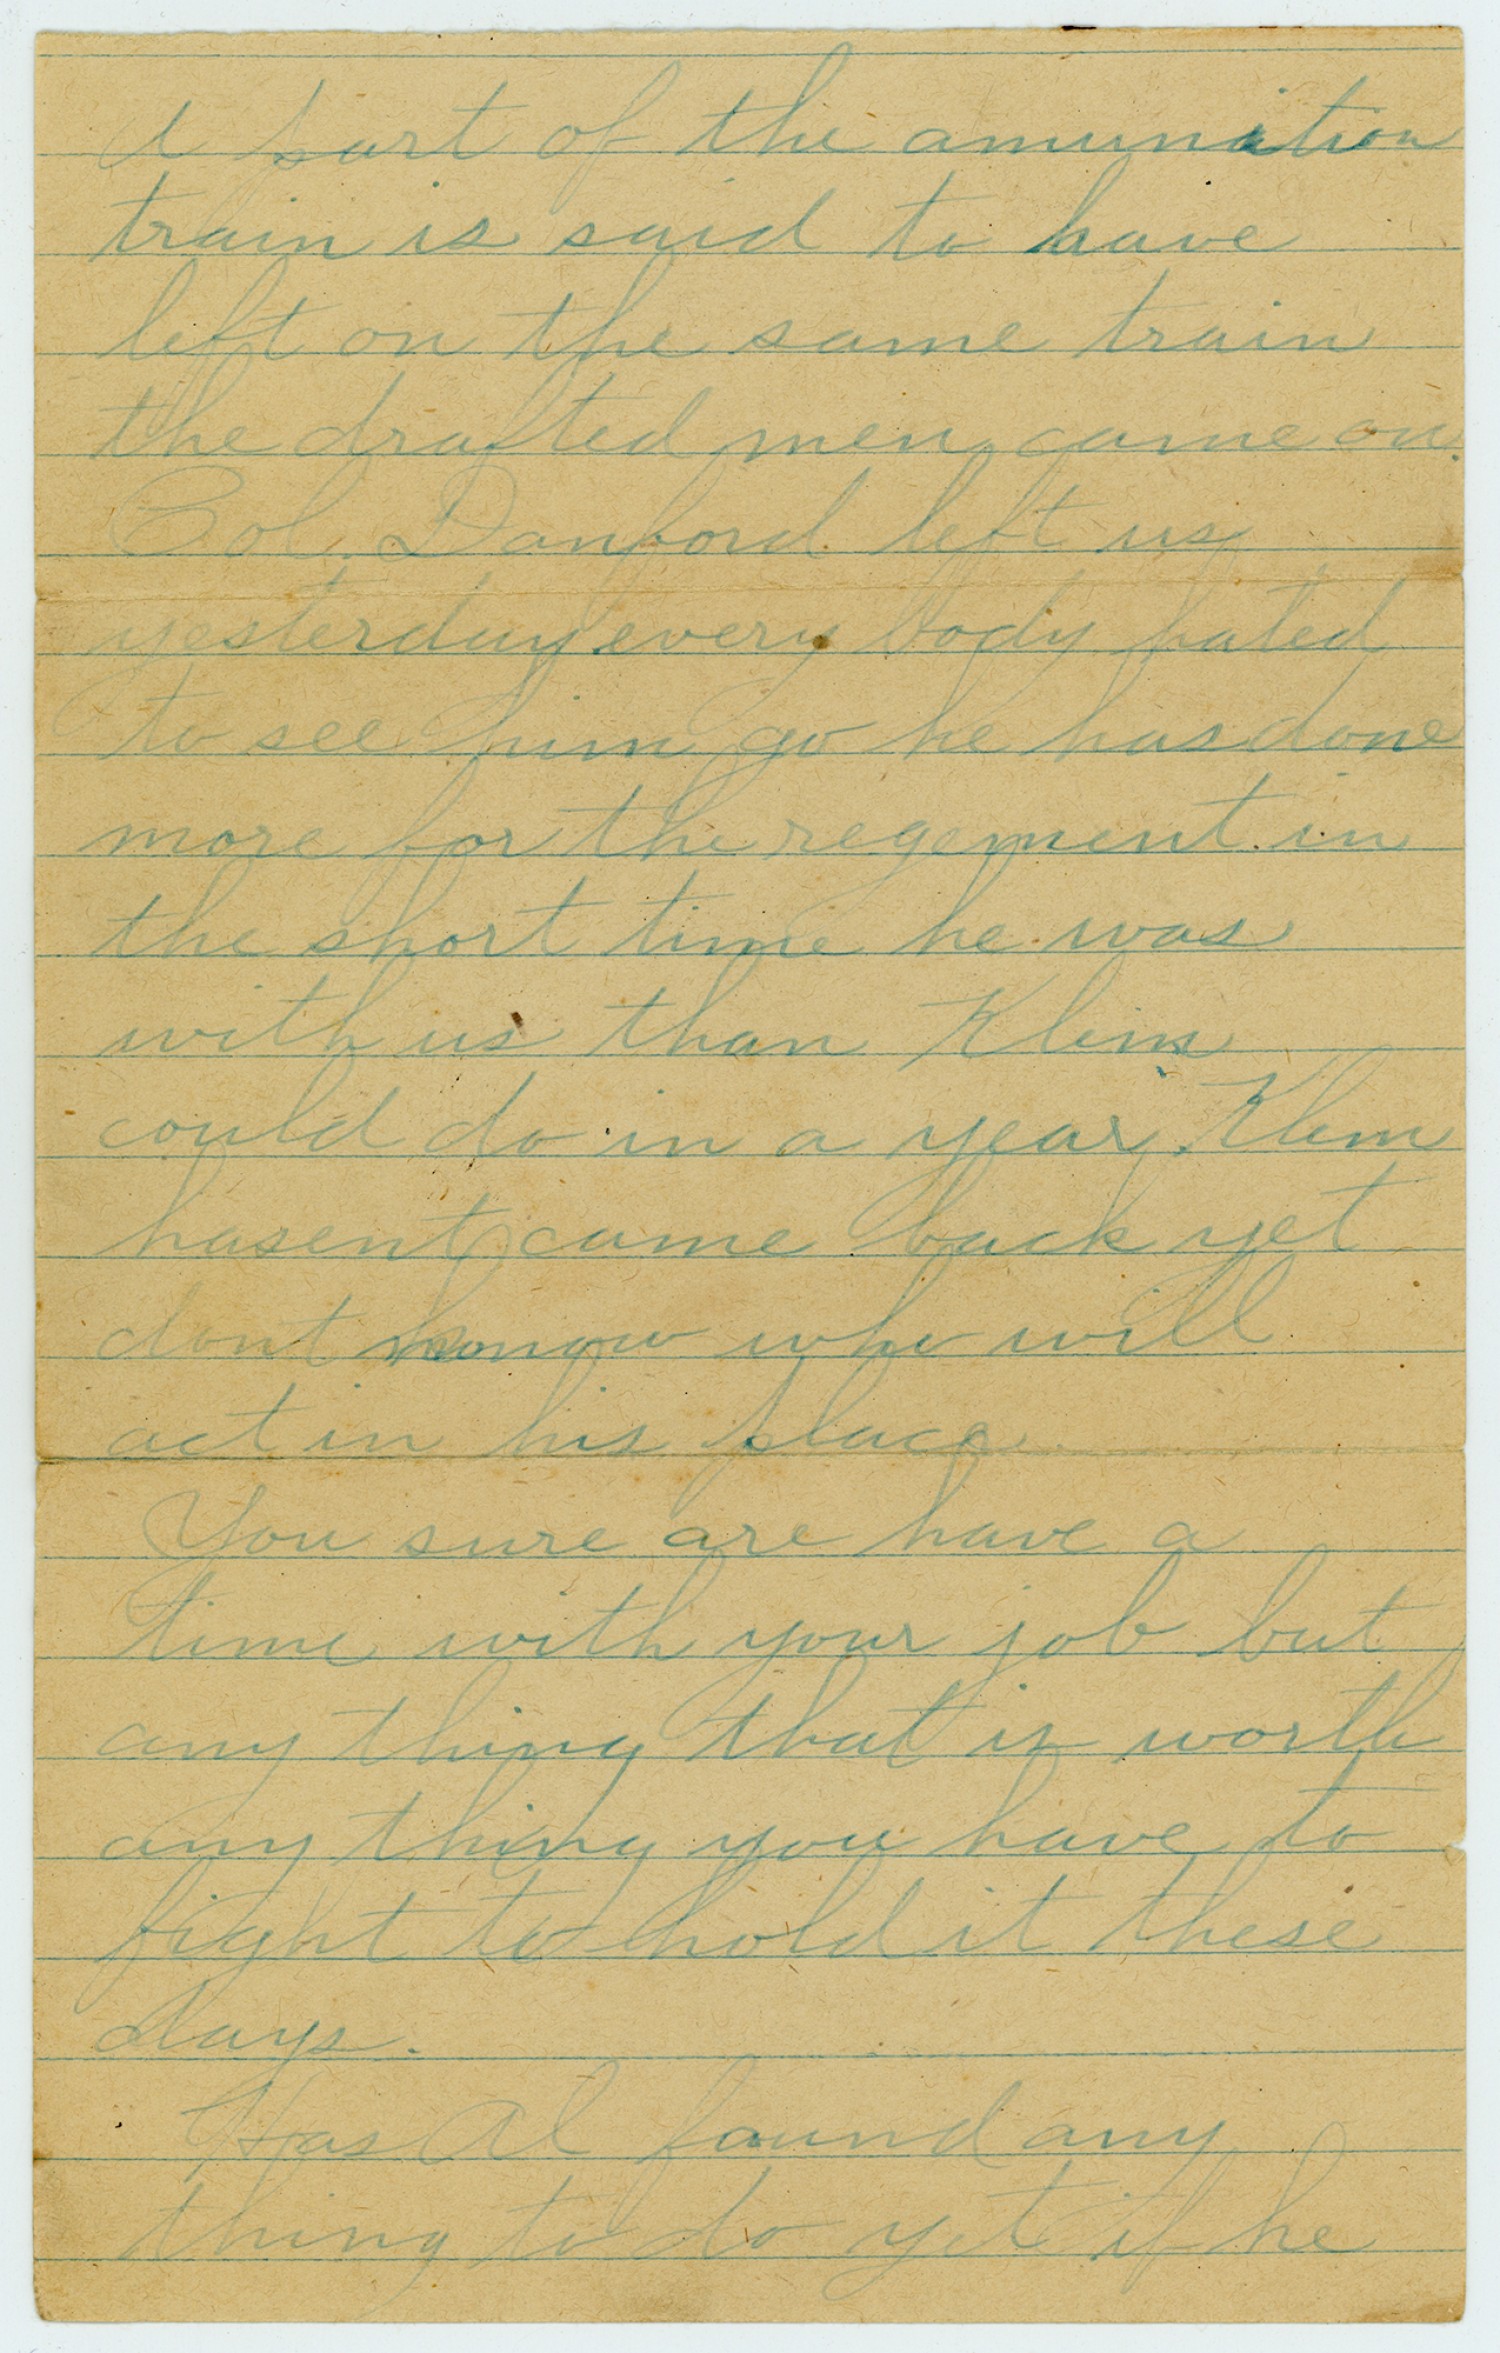 A part of the amunition
train is said to have
left on the same train
the drafted men came on.
Col. Danford left us
yesterday every body hated
to see him go he has done
more for the regement in
the short time he was
with us than Klem
could do in a year. Klem
hasent came back yet
dont know who will
act in his place.
You sure are have a
time with your job but
any thing that is worth
any thing you have to
fight to hold it these
days.
Has Al found any
thing to do yet if he